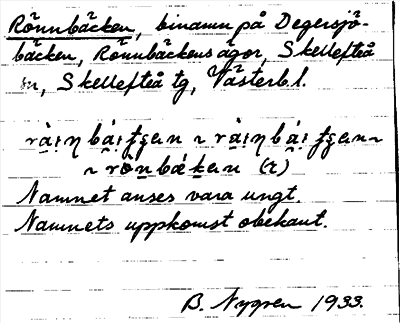 Rönnbäcken, binamn på Degersjö-
bäcken, Rönnbäckens ägor, Skellefteå
sn, Skellefteå tg, Västerb. l.
Namnet anses vara ungt.
Namnets uppkomst obekant.
B. Nygren 1933.